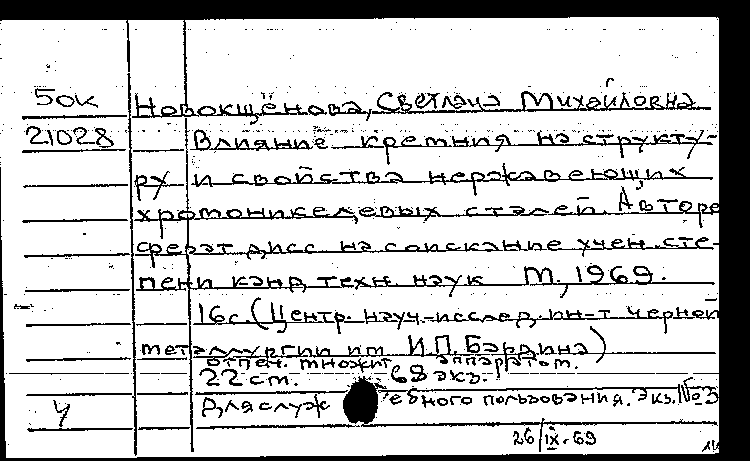 50К Новокщёнова, Светлана Михайловна
21028 Влияние кремния на структу-
ру и свойства нержавеющих
хромоникелевых сталей. Авторе
ферат дисс. на соискание учен. сте-
пени канд. техн. наук М., 1969.
16с. (Центр. науч.-исслед. ин-т черной
металлургии им. И.П. Бардина)
отпеч. множит. аппаратом.
22 см. 68 экз.
Ч Для служебного пользования. Экз. №3
26/IX-69